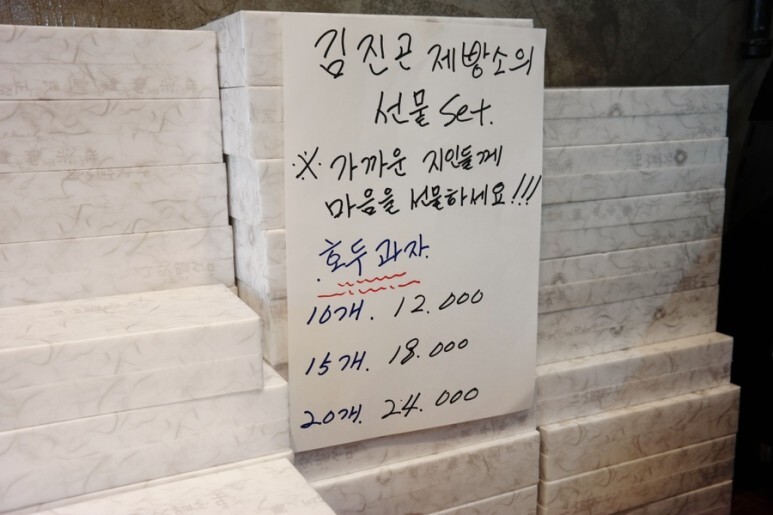 김진곤 제빵소의
선물 set.
※ 가까운 지인들께
마음을 선물하세요!!!
호두과자.
10개. 12.000
15개. 18.000
20개. 24.000